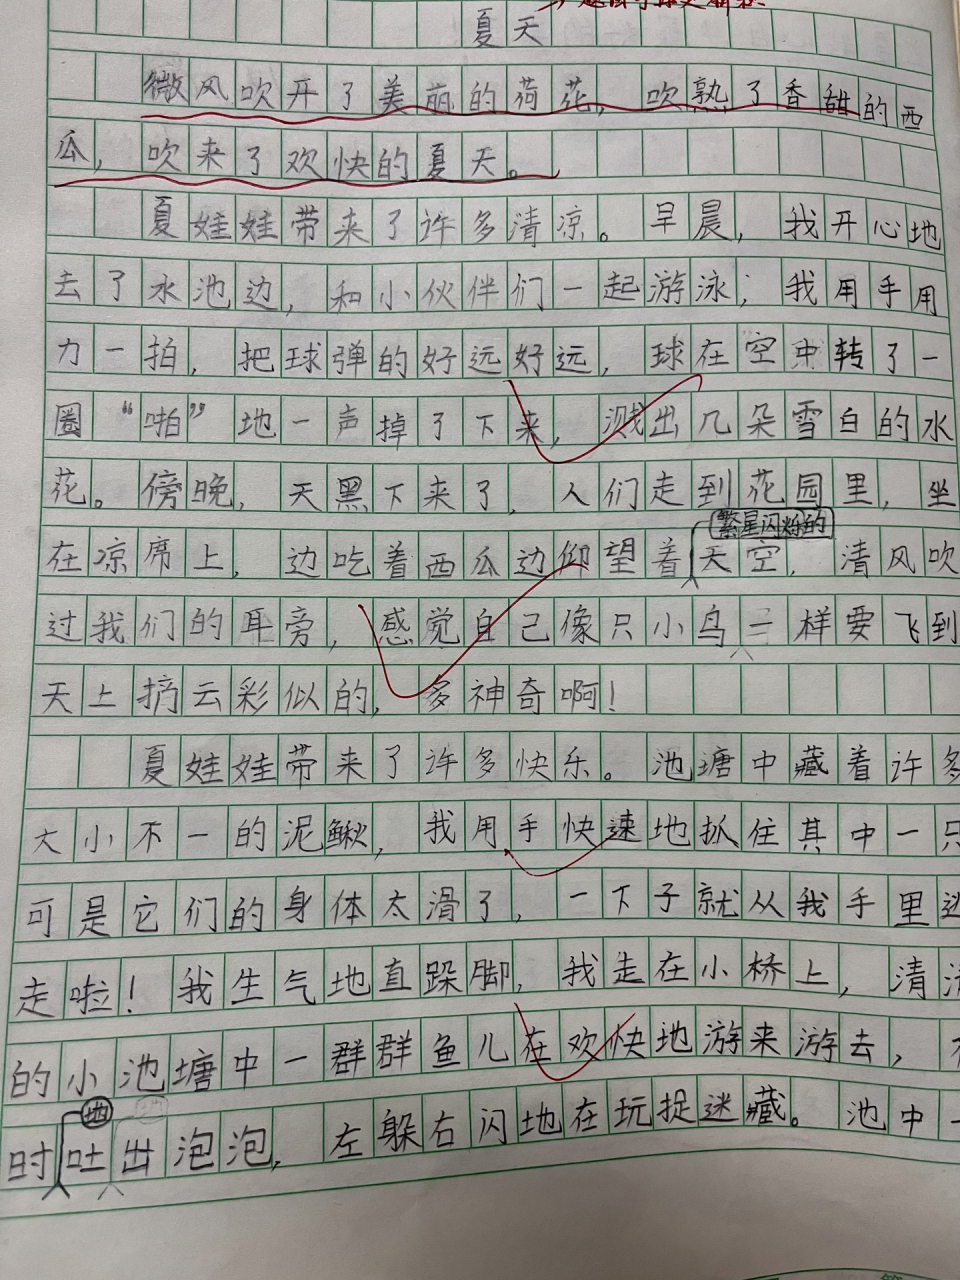 夏天
微风吹开了美丽的荷花，吹熟了香甜的西
瓜，吹来了欢快的夏天。
夏娃娃带来了许多清凉。早晨，我开心地
去了水池边，和小伙伴们一起游泳；我用手用
力一拍，把球弹的好远好远，球在空中转了一
圈“啪”地一声掉了下来，溅出几朵雪白的水
花。傍晚，天黑下来了，人们走到花园里，坐
繁星闪烁的
在凉席上，边吃着西瓜边仰望着天空，清风吹
过我们的耳旁，感觉自己像只小鸟一样要飞到
天上摘云彩似的，多神奇啊！
夏娃娃带来了许多快乐。池塘中藏着许多
大小不一的泥鳅，我用手快速地抓住其中一只
可是它们的身体太滑了，一下子就从我手里逃
走啦！我生气地直跺脚，我走在小桥上，清
的小池塘中一群群鱼儿在欢快地游来游去，
地
时吐出泡泡，左躲右闪地在玩捉迷藏。池中